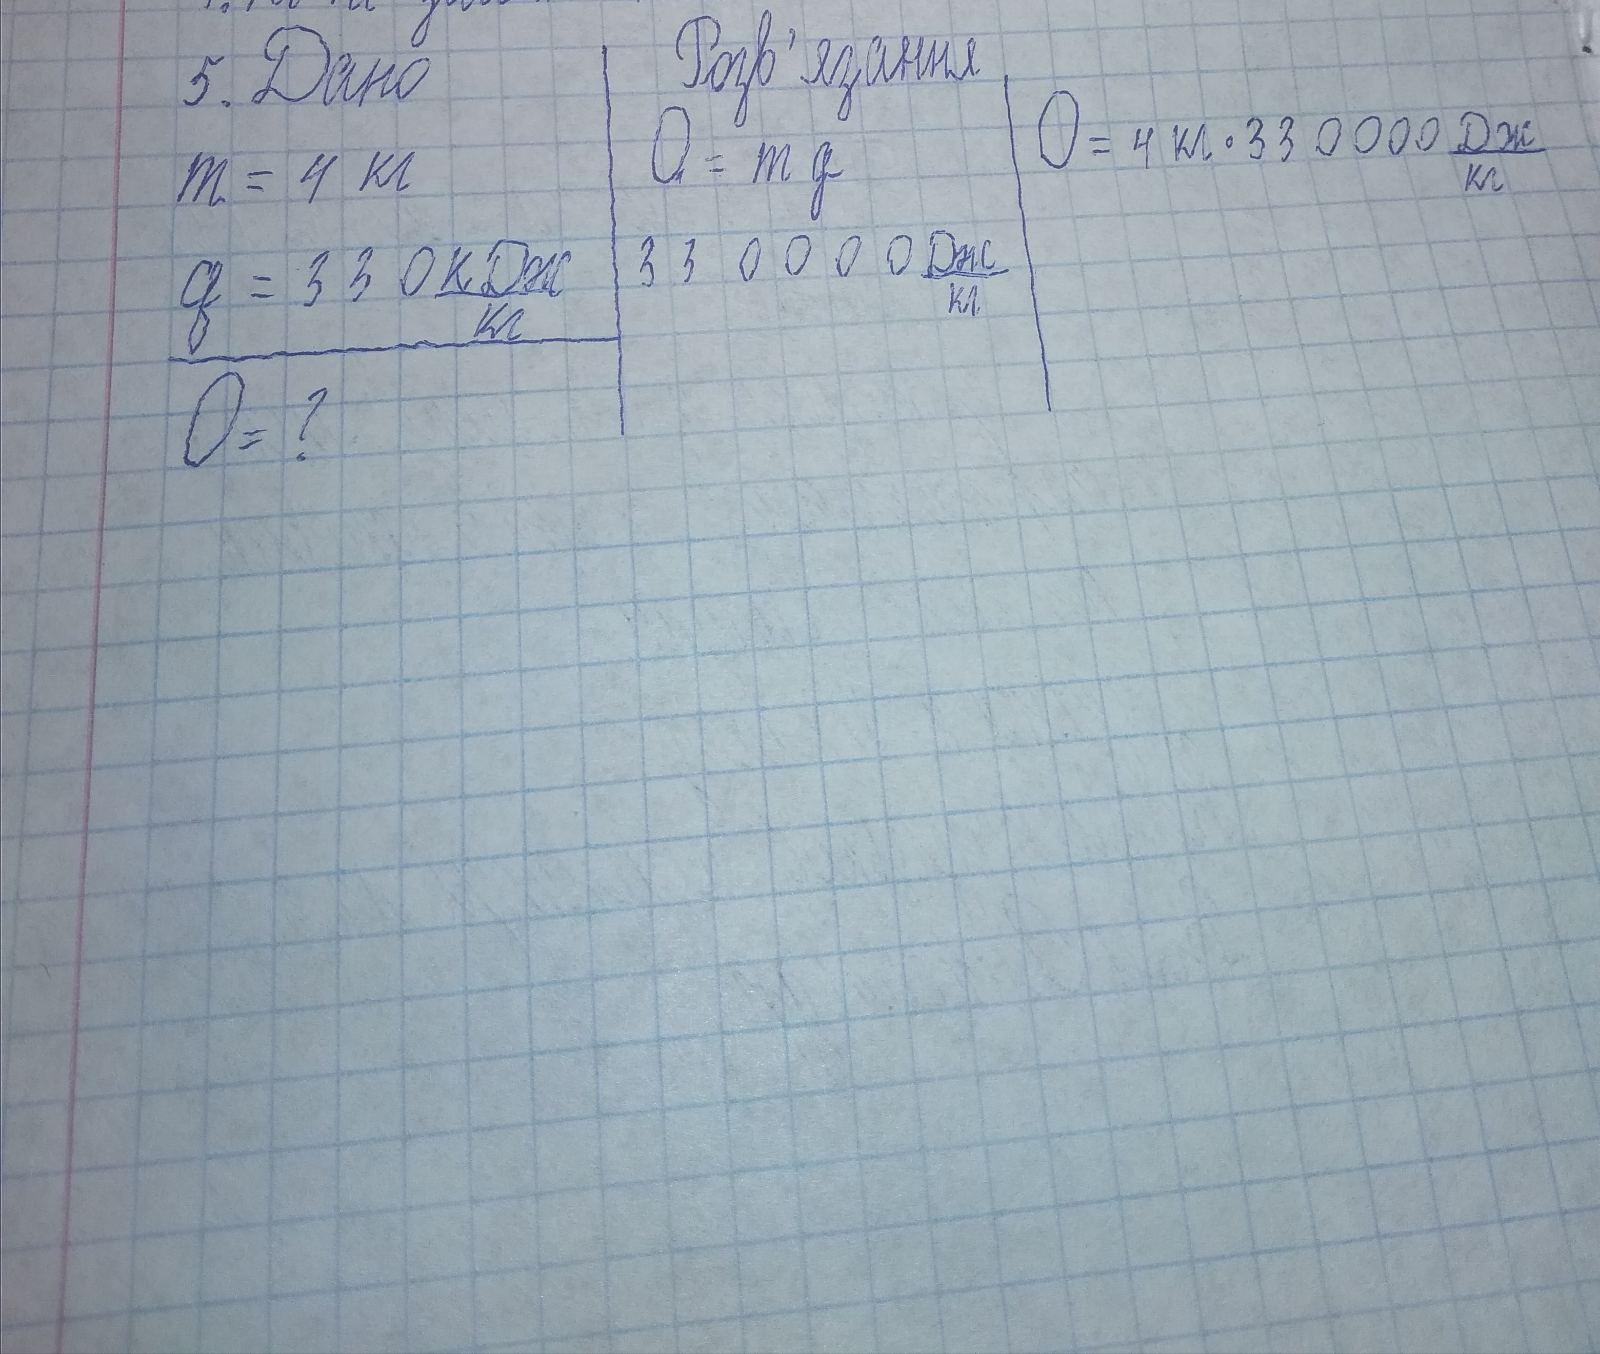 5. Дано
m = 4 кг
q = 330 кДж/кг
Q = ?
Розв'язання
Q = mq
330000 Дж/кг
Q = 4 кг · 330000 Дж/кг